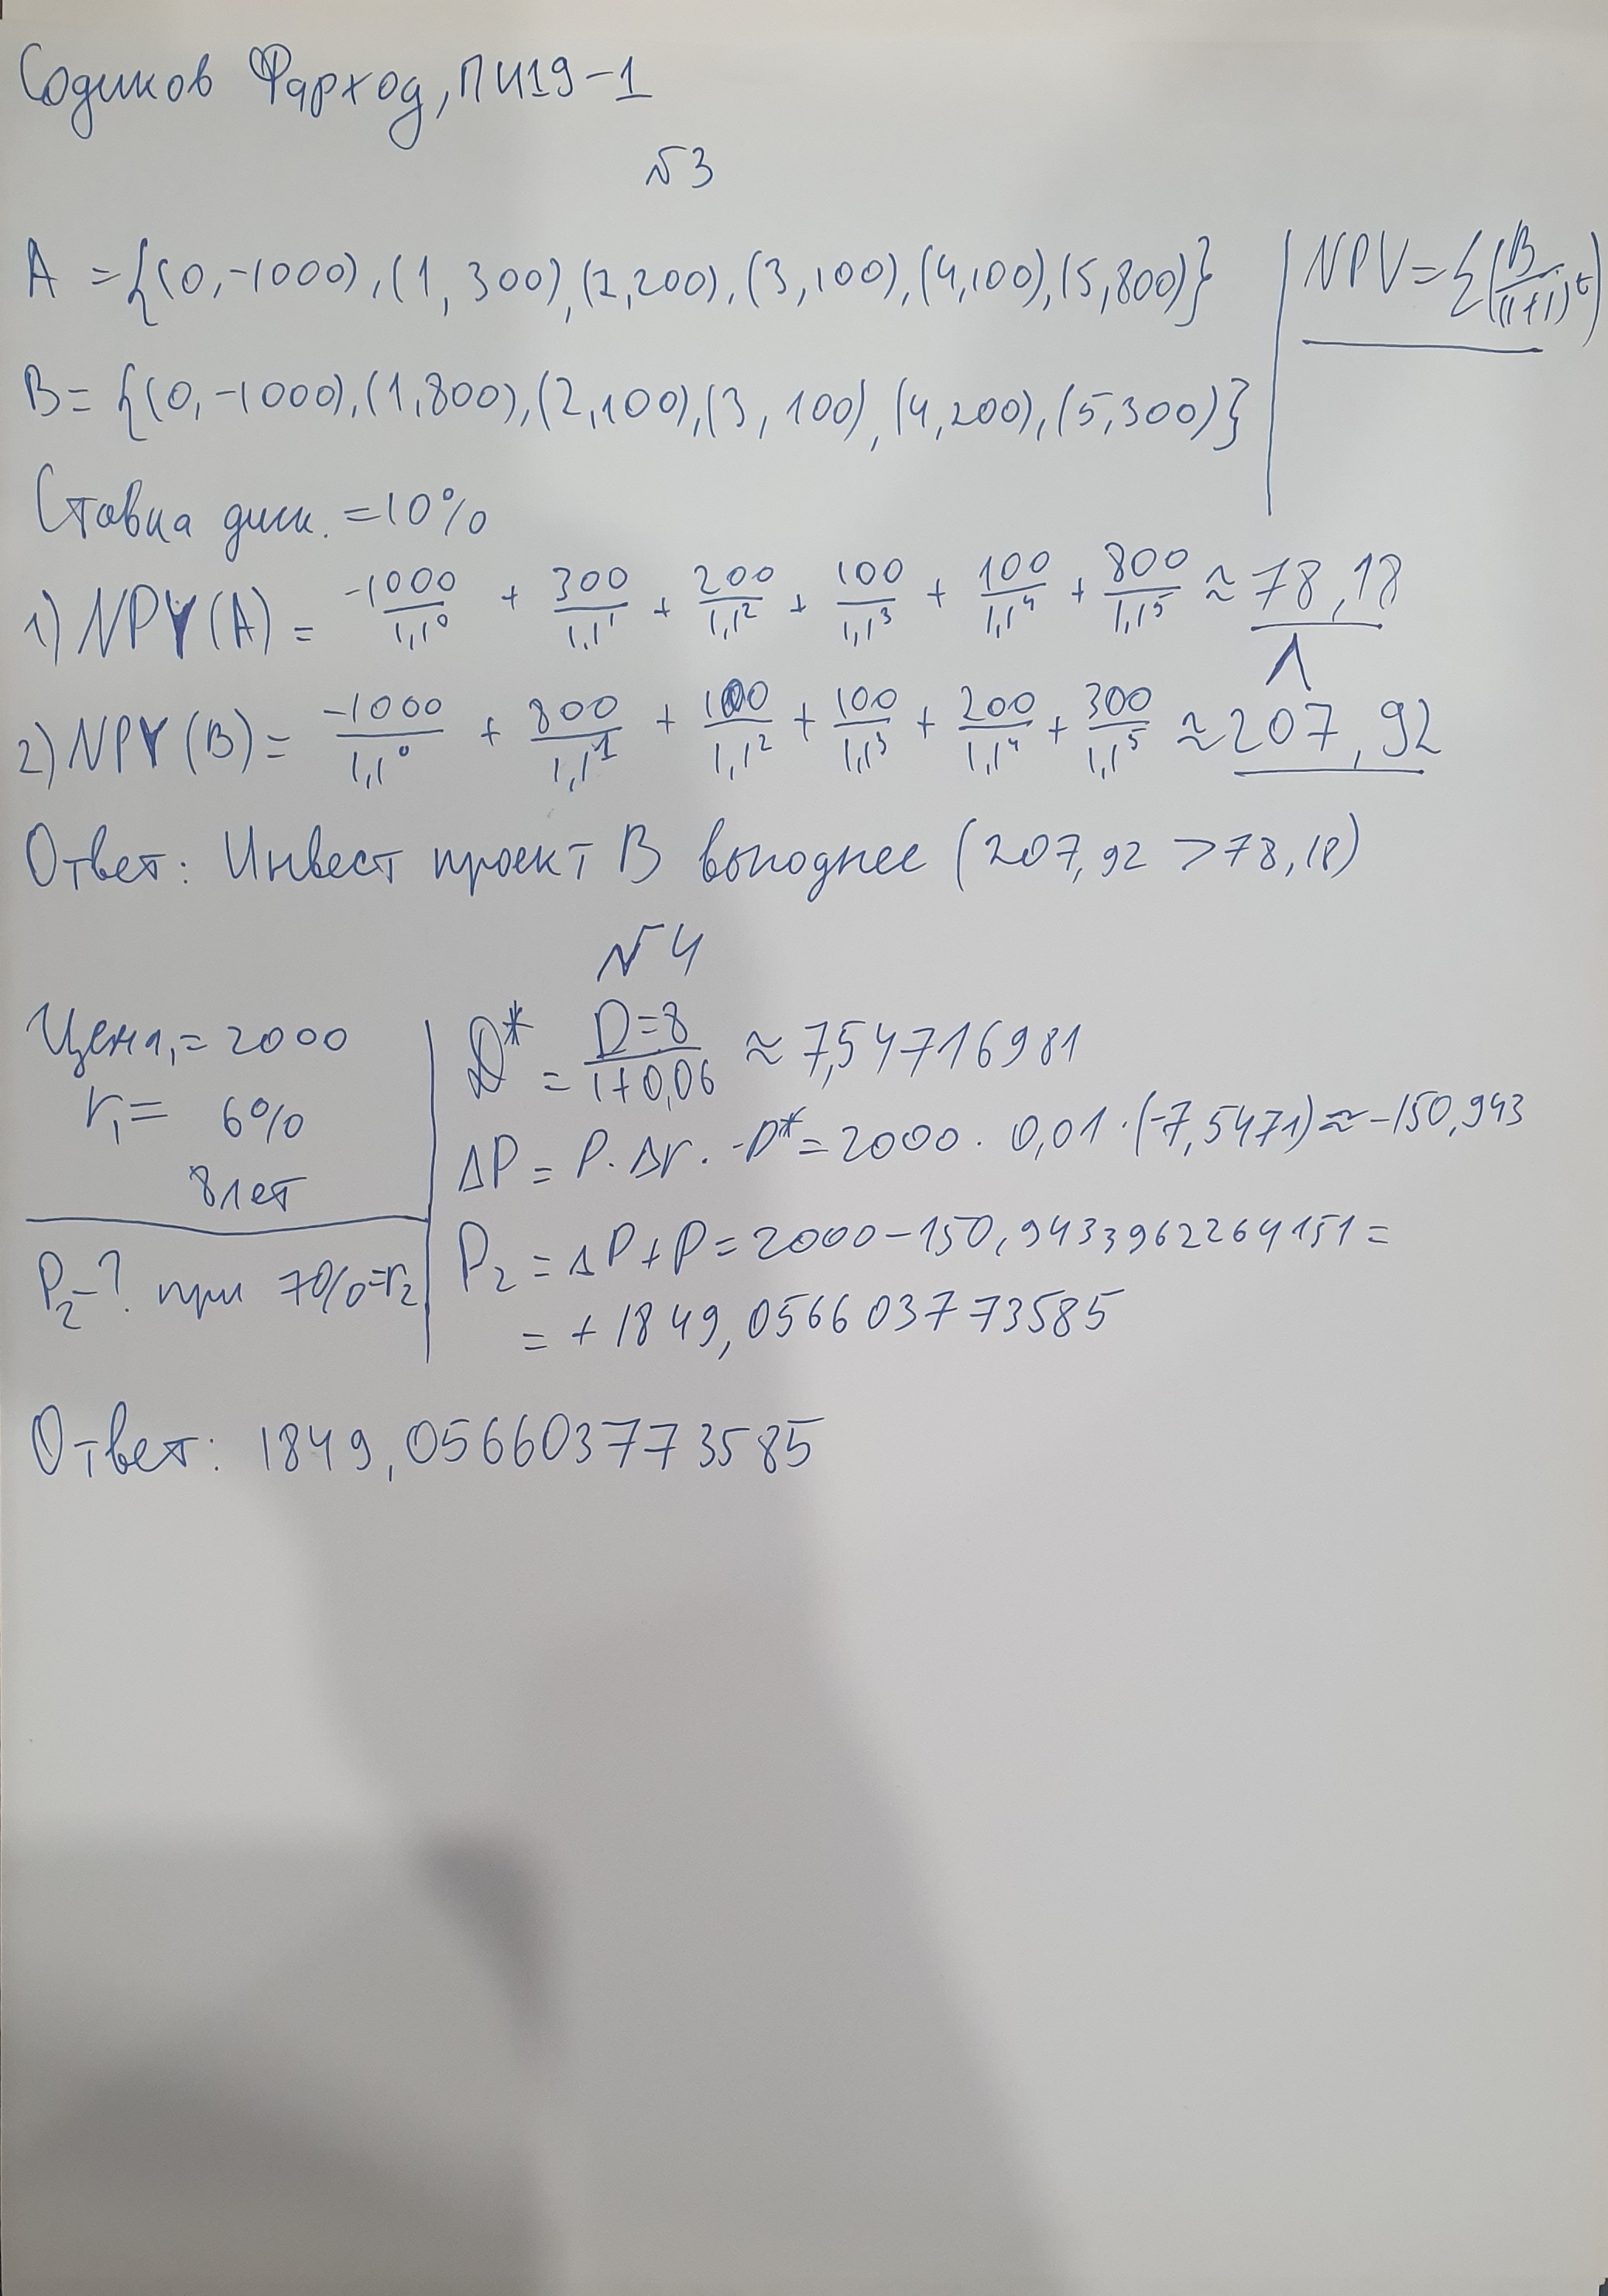 Содиков Фарход, ПИ19-1
№3
A = {(0,-1000), (1, 300), (2,200), (3,100), (4,100), (5,800)}
NPV = Σ(B/(1+i)^t)
B = {(0,-1000), (1,800), (2,100), (3, 100), (4,200), (5,300)}
Ставка диск. = 10%
1) NPV(A) = -1000/1,1^0 + 300/1,1^1 + 200/1,1^2 + 100/1,1^3 + 100/1,1^4 + 800/1,1^5 ≈ 78,18
Λ
2) NPV(B) = -1000/1,1^0 + 800/1,1^1 + 100/1,1^2 + 100/1,1^3 + 200/1,1^4 + 300/1,1^5 ≈ 207,92
Ответ: Инвест проект B выгоднее (207,92 > 78,18)
№4
Цена₁ = 2000
r₁ = 6%
8 лет
P₂-? при 7% = r₂
D* = D=8/1+0,06 ≈ 7,54716981
ΔP = P · Δr · -D* = 2000 · 0,01 · (-7,5471) ≈ -150,943
P₂ = ΔP + P = 2000 - 150,9433962264151 =
= + 1849,056603773585
Ответ: 1849,056603773585